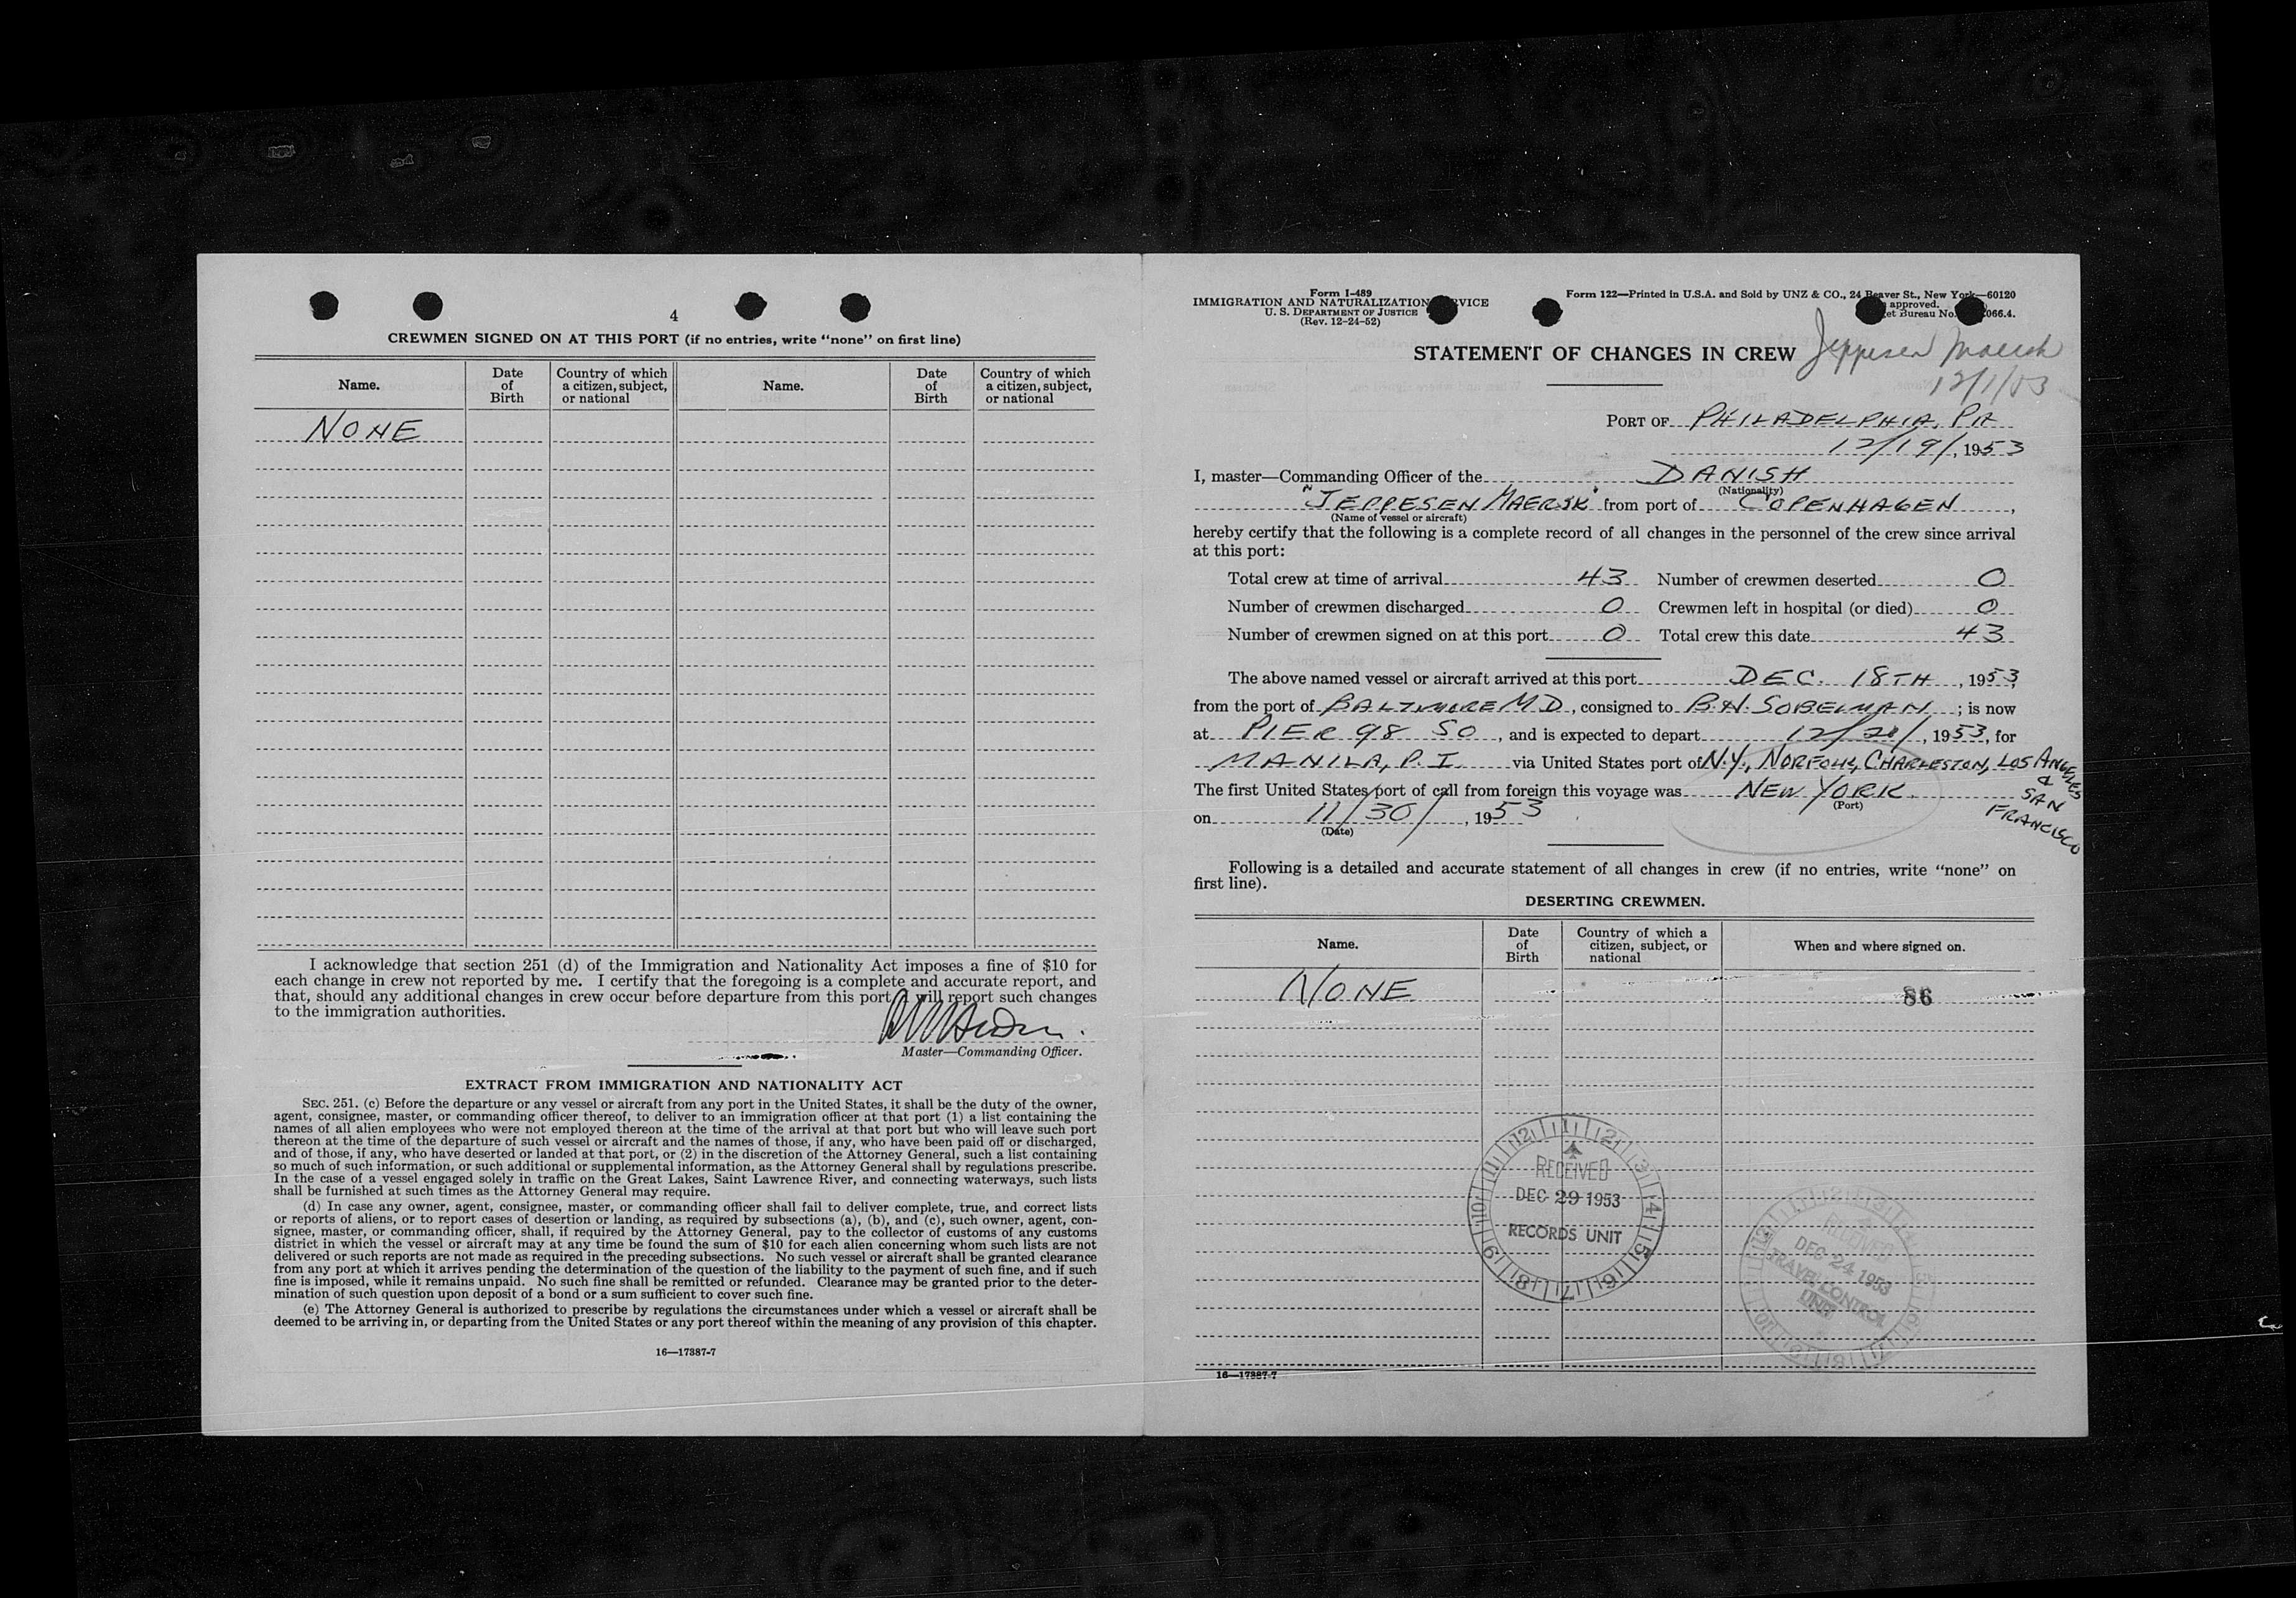 4
CREWMEN SIGNED ON AT THIS PORT (if no entries, write "none" on first line)
Name. Date of Birth Country of which a citizen, subject, or national Name. Date of Birth Country of which a citizen, subject, or national
NONE
I acknowledge that section 251 (d) of the Immigration and Nationality Act imposes a fine of $10 for
each change in crew not reported by me. I certify that the foregoing is a complete and accurate report, and
that, should any additional changes in crew occur before departure from this port, I will report such changes
to the immigration authorities.
Master—Commanding Officer.
EXTRACT FROM IMMIGRATION AND NATIONALITY ACT
SEC. 251. (c) Before the departure or any vessel or aircraft from any port in the United States, it shall be the duty of the owner,
agent, consignee, master, or commanding officer thereof, to deliver to an immigration officer at that port (1) a list containing the
names of all alien employees who were not employed thereon at the time of the arrival at that port but who will leave such port
thereon at the time of the departure of such vessel or aircraft and the names of those, if any, who have been paid off or discharged,
and of those, if any, who have deserted or landed at that port, or (2) in the discretion of the Attorney General, such a list containing
so much of such information, or such additional or supplemental information, as the Attorney General shall by regulations prescribe.
In the case of a vessel engaged solely in traffic on the Great Lakes, Saint Lawrence River, and connecting waterways, such lists
shall be furnished at such times as the Attorney General may require.
(d) In case any owner, agent, consignee, master, or commanding officer shall fail to deliver complete, true, and correct lists
or reports of aliens, or to report cases of desertion or landing, as required by subsections (a), (b), and (c), such owner, agent, con-
signee, master, or commanding officer, shall, if required by the Attorney General, pay to the collector of customs of any customs
district in which the vessel or aircraft may at any time be found the sum of $10 for each alien concerning whom such lists are not
delivered or such reports are not made as required in the preceding subsections. No such vessel or aircraft shall be granted clearance
from any port at which it arrives pending the determination of the question of the liability to the payment of such fine, and if such
fine is imposed, while it remains unpaid. No such fine shall be remitted or refunded. Clearance may be granted prior to the deter-
mination of such question upon deposit of a bond or a sum sufficient to cover such fine.
(e) The Attorney General is authorized to prescribe by regulations the circumstances under which a vessel or aircraft shall be
deemed to be arriving in, or departing from the United States or any port thereof within the meaning of any provision of this chapter.
16—17387-7
Form I-489
IMMIGRATION AND NATURALIZATION RVICE
U. S. DEPARTMENT OF JUSTICE
(Rev. 12-24-52)
Form 122—Printed in U.S.A. and Sold by UNZ & CO., 24 Beaver St., New York—60120
approved.
et Bureau No. 066.4.
STATEMENT OF CHANGES IN CREW
Jeppesen Maersk
12/1/53
PORT OF PHILADELPHIA, PA
12/19/, 1953
I, master—Commanding Officer of the DANISH
(Nationality)
"JEPPESEN MAERSK" from port of COPENHAGEN,
(Name of vessel or aircraft)
hereby certify that the following is a complete record of all changes in the personnel of the crew since arrival
at this port:
Total crew at time of arrival 43 Number of crewmen deserted 0
Number of crewmen discharged 0 Crewmen left in hospital (or died) 0
Number of crewmen signed on at this port 0 Total crew this date 43
The above named vessel or aircraft arrived at this port DEC. 18TH, 1953,
from the port of BALTIMORE MD, consigned to B.H. SOBELMAN; is now
at PIER 98 SO, and is expected to depart 12/20/, 1953, for
MANILA, P.I. via United States port of N.Y., NORFOLK, CHARLESTON, LOS ANGELES
& SAN FRANCISCO
The first United States port of call from foreign this voyage was NEW YORK.
(Port)
on 11/30/, 1953
(Date)
Following is a detailed and accurate statement of all changes in crew (if no entries, write "none" on
first line).
DESERTING CREWMEN.
Name. Date of Birth Country of which a citizen, subject, or national When and where signed on.
NONE
86
RECEIVED
DEC 29 1953
RECORDS UNIT
RECEIVED
DEC 24 1953
TRAVEL CONTROL
UNIT
16—17387-7